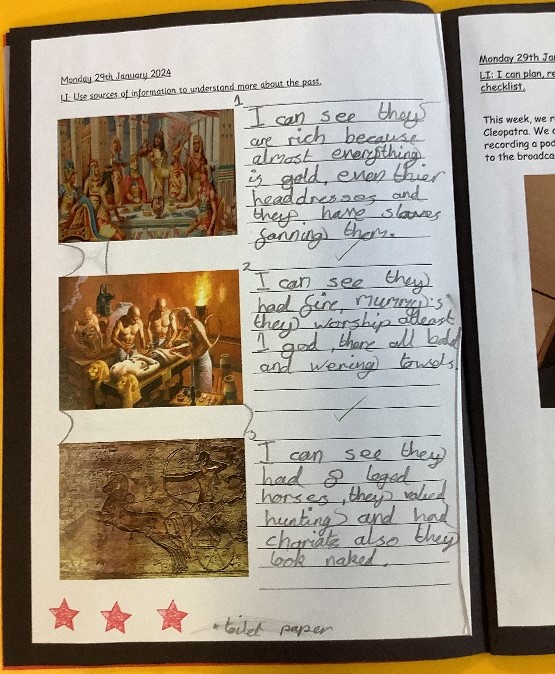 Monday 29th January 2024
LI: Use sources of information to understand more about the past.
1
I can see they
are rich because
almost everything
is gold, even thier
headdresses and
they have slaves
fanning them.
2
I can see they
had fire, mummy's
they worship atleast
1 god, there all bald
and wering towels.
3
I can see they
had 8 leged
horses, they valied
hunting and had
chariats also they
look naked.
*toilet paper
Monday 29th Ja
LI: I can plan, re
checklist.
This week, we r
Cleopatra. We
recording a pod
to the broadca